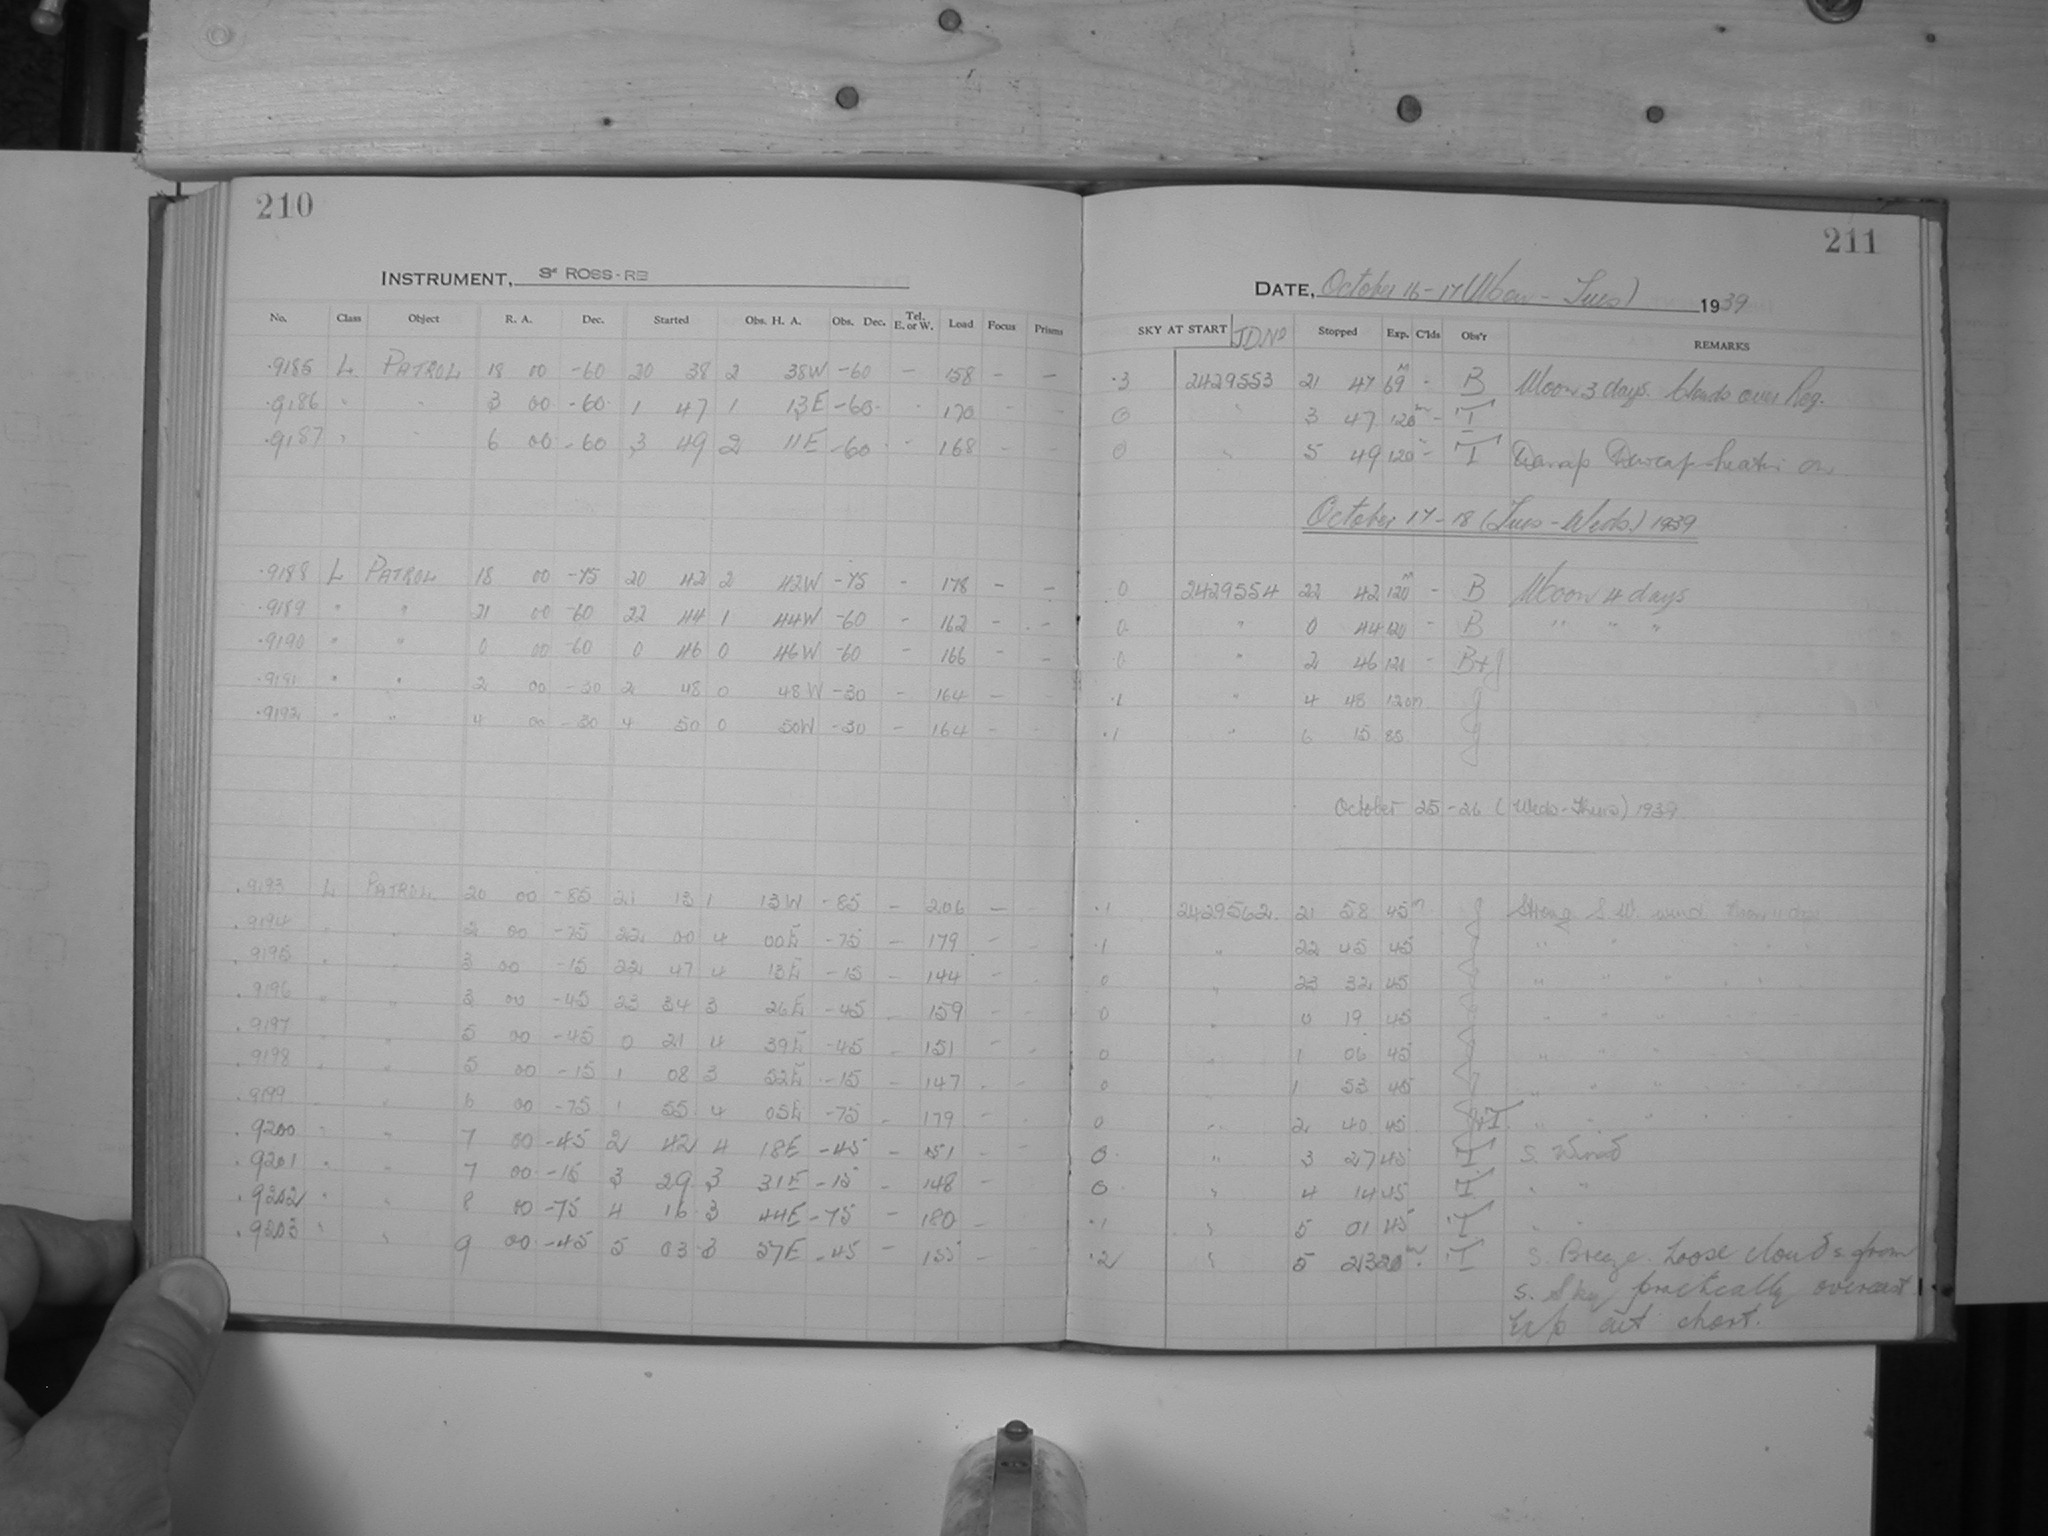 210
INSTRUMENT, 3" ROSS-RB
No. Class Object R. A. Dec. Started Obs. H. A. Obs. Dec. Tel. E. or W. Load Focus Prisms
.9185 L PATROL 18 00 -60 20 38 2 38W -60 - 158 - -
.9186 " " 3 00 -60 1 47 1 13E -60 - 170 - -
.9187 " " 6 00 -60 3 49 2 11E -60 - 168 - -
.9188 L PATROL 18 00 -75 20 42 2 42W -75 - 178 - -
.9189 " " 21 00 -60 22 44 1 44W -60 - 162 - -
.9190 " " 0 00 -60 0 46 0 46W -60 - 166 - -
.9191 " " 2 00 -30 2 48 0 48W -30 - 164 - -
.9192 " " 4 00 -30 4 50 0 50W -30 - 164 - -
.9193 L PATROL 20 00 -85 21 13 1 13W -85 - 206 - -
.9194 " " 2 00 -75 22 00 4 00E -75 - 179 - -
.9195 " " 3 00 -15 22 47 4 13E -15 - 144 - -
.9196 " " 3 00 -45 23 34 3 26E -45 - 159 - -
.9197 " " 5 00 -45 0 21 4 39E -45 - 151 - -
.9198 " " 5 00 -15 1 08 3 52E -15 - 147 - -
.9199 " " 6 00 -75 1 55 4 05E -75 - 179 - -
.9200 " " 7 00 -45 2 42 4 18E -45 - 151 - -
.9201 " " 7 00 -15 3 29 3 31E -15 - 148 - -
.9202 " " 8 00 -75 4 16 3 44E -75 - 180 -
.9203 " " 9 00 -45 5 03 3 57E -45 - 155 -
211
DATE, October 16-17 (Mon - Tues) 1939
SKY AT START JD No Stopped Exp. C'lds Obs'r REMARKS
.3 2429553 21 47 69m - B Moon 3 days. Clouds over Reg.
0 " 3 47 120m - T
0 " 5 49 120 - T Damp Dewcap heater on
October 17-18 (Tues-Weds) 1939
0 2429554 22 42 120m - B Moon 4 days
0 " 0 44 120 - B " " "
0 " 2 46 120 - B+J
.1 " 4 48 120m J
.1 " 6 15 85 J
October 25-26 (Weds-Thurs) 1939
.1 2429562 21 58 45m J Strong S.W. wind Moon days
.1 " 22 45 45 " "
0 " 23 32 45 " " "
0 " 0 19 45 " " "
0 " 1 06 45 " " "
0 " 1 53 45 " " "
0 " 2 40 45 J+T " " "
0 " 3 27 45 T S. Wind
0 " 4 14 45 T " "
.1 " 5 01 45 T " "
.2 " 5 23 20m. T S. Breeze. Loose clouds from
S. Sky practically overcast
Exp cut short.